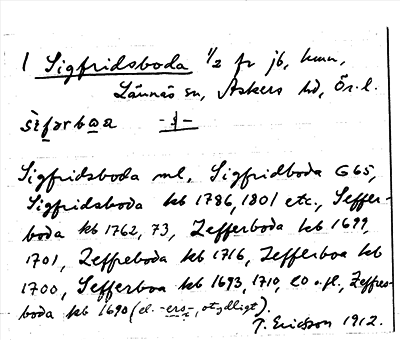 1 Sigfridsboda 1/2 fr jb, kmn,
Lännäs sn, Askers hd, Ör. l.
sèfərbωa
Sigfridsboda ml, Sigfridboda G65,
Sigfridsboda kb 1786, 1801 etc., Seffer-
boda kb 1762, 73, Zefferboda kb 1699,
1701, Zeffreboda kb 1716, Zefferboa kb
1700, Sefferboa kb 1693, 1710, 20 o. fl., Zeffres-
boda kb 1690 (el. -ers-, otydligt).
T. Ericsson 1912.